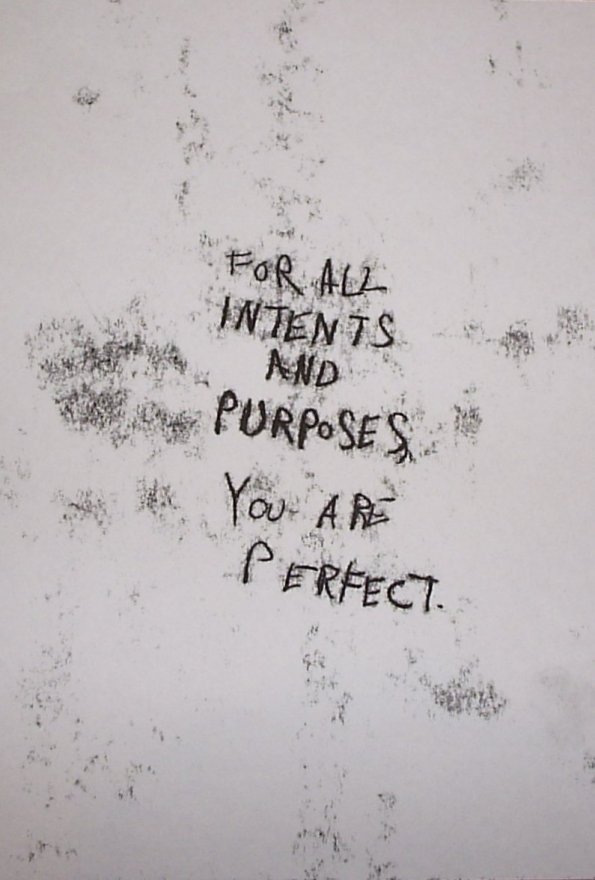 FOR ALL
INTENTS
AND
PURPOSES,
YOU ARE
PERFECT.